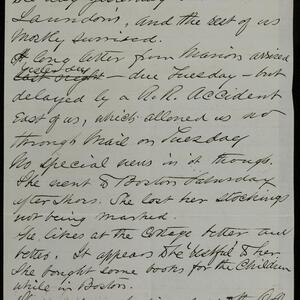 Laundon's, and the rest of us
mostly surprised.
A long letter from Marion arrived
yesterday
last night – due Tuesday – but
delayed by R.R. Accident
East of us, which allowed us no
through mail on Tuesday
No special news in it though.
She went to Boston Saturday
after shoes. She lost her stockings
not being marked.
She likes at the College better and
better. It appears to be "restful" to her
She bought some books for the Children
while in Boston.